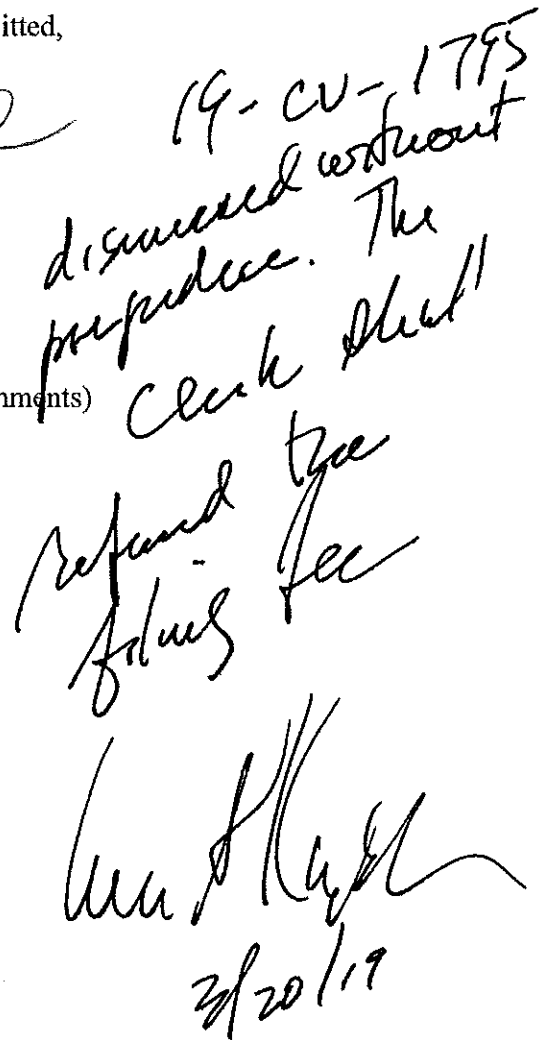 itted,
19-CV-1795
dismissed without
prejudice. The
Clerk shall
nments)
refund the
filing fee
3/20/19